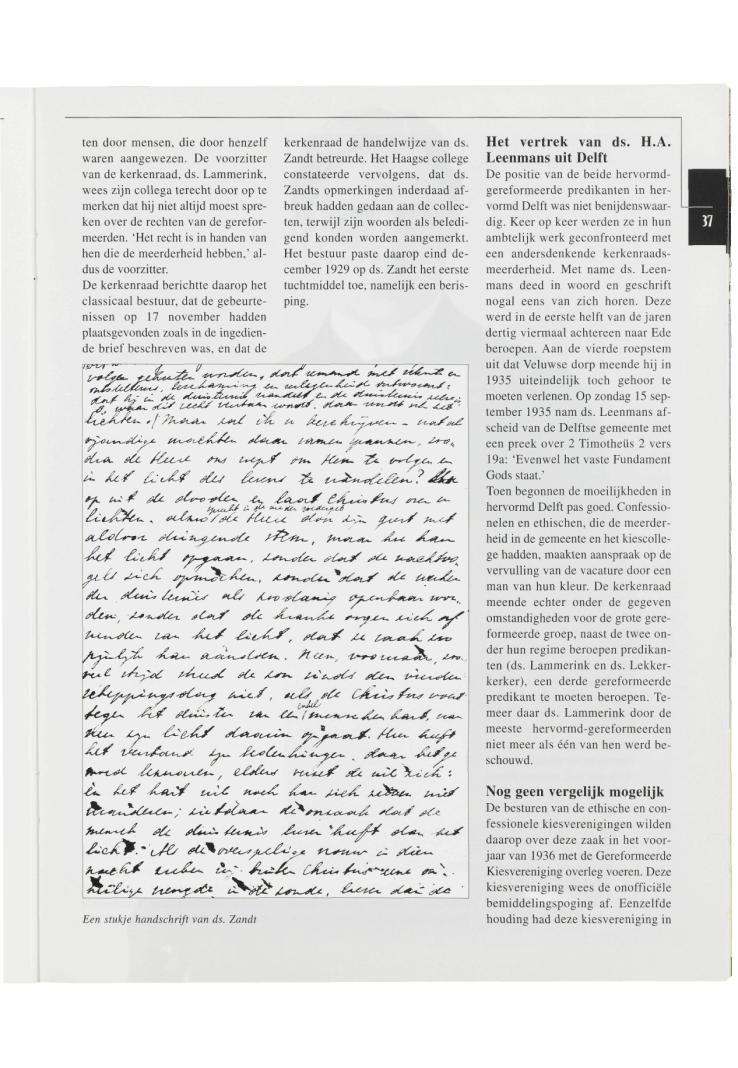 ten door mensen, die door henzelf
waren aangewezen. De voorzitter
van de kerkenraad, ds. Lammerink,
wees zijn collega terecht door op te
merken dat hij niet altijd moest spre-
ken over de rechten van de gerefor-
meerden. ‘Het recht is in handen van
hen die de meerderheid hebben,’ al-
dus de voorzitter.
De kerkenraad berichtte daarop het
classicaal bestuur, dat de gebeurte-
nissen op 17 november hadden
plaatsgevonden zoals in de ingedien-
de brief beschreven was, en dat de
kerkenraad de handelwijze van ds.
Zandt betreurde. Het Haagse college
constateerde vervolgens, dat ds.
Zandts opmerkingen inderdaad af-
breuk hadden gedaan aan de collec-
ten, terwijl zijn woorden als beledi-
gend konden worden aangemerkt.
Het bestuur paste daarop eind de-
cember 1929 op ds. Zandt het eerste
tuchtmiddel toe, namelijk een beris-
ping.
volgen geheeten worden, dat iemand met
ontsteltenis, beschaming en verlegenheid antwoord:
dat hij in de duisternis wandelt en de duisternis
lichten. Maar zal ik u beschrijven - wat al
vijandige machten daar samen spannen, wo-
dra de Heere ons roept om Hem te volgen en
in het licht des levens te wandelen?
op uit de dooden en laat Christus over u
lichten. de Heere door zijn geest met
aldoor dringende stem, maar hoe kan
het licht opgaan, zonder dat de nachtvo-
gels zich opmaken, zonder dat de werken
der duisternis als zoodanig openbaar wor-
den, zonder dat de kranke oogen zich af
wenden van het licht, dat ze vaak zoo
pijnlijk kan aandoen. Neen, voorwaar, zoo
veel strijd streed de zon sinds den vierden
scheppingsdag niet, als de Christus voert
tegen het duister van een enkel menschenhart, van
zijn licht daarin opgaat. Hier heeft
het verstand zijn bedenkingen, daar het ge
moed, elders verzet de wil zich:
en het hart wil noch kan zich zelven niet
veranderen; ziet daar de oorzaak dat de
mensch de duisternis liever heeft dan het
licht. Als de overspelige vrouw in dien
nacht buiten Christus
heilige vreugde in de zonde, liever dan de
Een stukje handschrift van ds. Zandt
Het vertrek van ds. H.A.
Leenmans uit Delft
De positie van de beide hervormd-
gereformeerde predikanten in her-
vormd Delft was niet benijdenswaar-
dig. Keer op keer werden ze in hun
ambtelijk werk geconfronteerd met
een andersdenkende kerkenraads-
meerderheid. Met name ds. Leen-
mans deed in woord en geschrift
nogal eens van zich horen. Deze
werd in de eerste helft van de jaren
dertig viermaal achtereen naar Ede
beroepen. Aan de vierde roepstem
uit dat Veluwse dorp meende hij in
1935 uiteindelijk toch gehoor te
moeten verlenen. Op zondag 15 sep-
tember 1935 nam ds. Leenmans af-
scheid van de Delftse gemeente met
een preek over 2 Timotheüs 2 vers
19a: ‘Evenwel het vaste Fundament
Gods staat.’
Toen begonnen de moeilijkheden in
hervormd Delft pas goed. Confessio-
nelen en ethischen, die de meerder-
heid in de gemeente en het kiescolle-
ge hadden, maakten aanspraak op de
vervulling van de vacature door een
man van hun kleur. De kerkenraad
meende echter onder de gegeven
omstandigheden voor de grote gere-
formeerde groep, naast de twee on-
der hun regime beroepen predikan-
ten (ds. Lammerink en ds. Lekker-
kerker), een derde gereformeerde
predikant te moeten beroepen. Te-
meer daar ds. Lammerink door de
meeste hervormd-gereformeerden
niet meer als één van hen werd be-
schouwd.
Nog geen vergelijk mogelijk
De besturen van de ethische en con-
fessionele kiesverenigingen wilden
daarop over deze zaak in het voor-
jaar van 1936 met de Gereformeerde
Kiesvereniging overleg voeren. Deze
kiesvereniging wees de onofficiële
bemiddelingspoging af. Eenzelfde
houding had deze kiesvereniging in
37